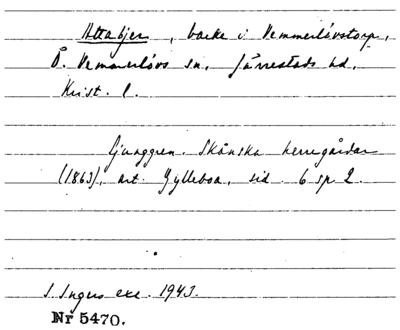 Attabjer, backe i Vemmerlövstorp,
Ö. Vemmerlövs sn, Järrestads hd,
Krist. l.
Ljunggren. Skånska herregårdar
(1863), art. Gyllebo, sid. 6 sp 2.
I. Ingers exc. 1943.
Nr 5470.